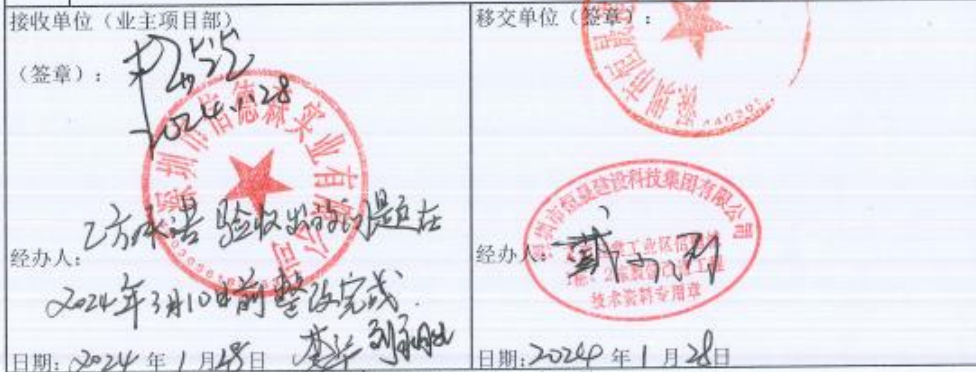 接收单位（业主项目部）
（签章）：
2024.1.28
深圳市信德森实业有限公司
乙方承诺验收出的问题在
经办人：
2024年3月10日前整改完成.
日期：2024年1月28日
移交单位（签章）：
深圳市恒晟建设科技集团有限公司
经办人：
技术资料专用章
日期：2024年1月28日